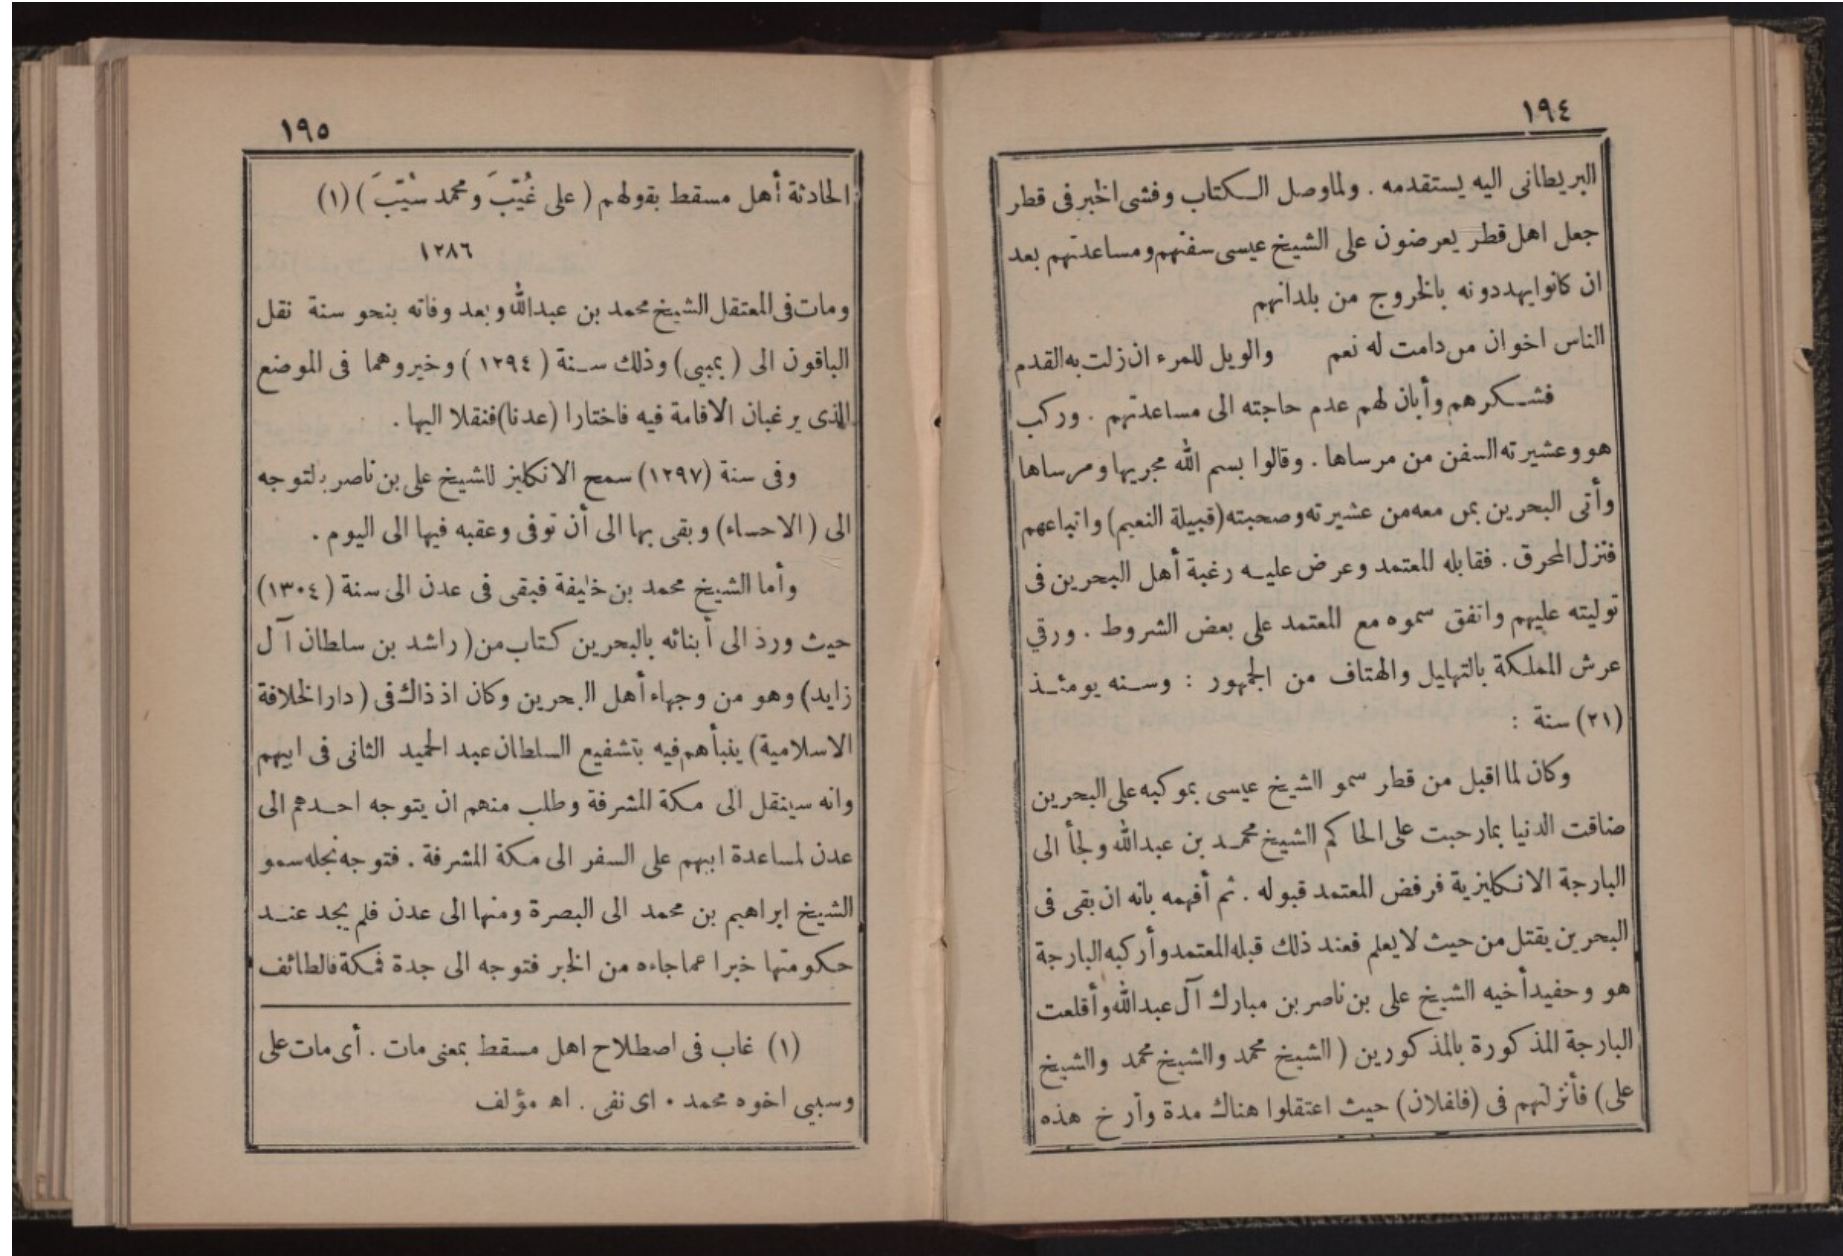 ١٩٤
البريطانى اليه يستقدمه . ولما وصل الكتاب وفشى اخبر فى قطر
جعل اهل قطر يعرضون على الشيخ عيسى سفنهم ومساعدتهم بعد
ان كانوا يهددونه بالخروج من بلدانهم
الناس اخوان من دامت له نعم والويل للمرء ان زلت به القدم
فشكرهم وأبان لهم عدم حاجته الى مساعدتهم . وركب
هو وعشيرته السفن من مرساها . وقالوا بسم الله مجريها ومرساها
وأتى البحرين بمن معه من عشيرته وصحبته (قبيلة النعيم) واتباعهم
فنزل المحرق . فقابله المعتمد وعرض عليه رغبة أهل البحرين فى
توليته عليهم واتفق سموه مع المعتمد على بعض الشروط . ورقي
عرش المملكة بالتهليل والهتاف من الجمهور : وسنه يومئذ
(٢١) سنة :
وكان لما اقبل من قطر سمو الشيخ عيسى بموكبه على البحرين
ضاقت الدنيا بمارحبت على الحاكم الشيخ محمد بن عبدالله ولجأ الى
البارجة الانكليزية فرفض المعتمد قبوله . ثم أفهمه بانه ان بقى فى
البحرين يقتل من حيث لا يعلم فعند ذلك قبله المعتمد وأركبه البارجة
هو وحفيد أخيه الشيخ على بن ناصر بن مبارك آل عبدالله وأقلعت
البارجة المذكورة بالمذكورين ( الشيخ محمد والشيخ محمد والشيخ
على) فأنزلتهم فى (فلفلان) حيث اعتقلوا هناك مدة وأرخ هذه
١٩٥
الحادثة أهل مسقط بقولهم ( على غُيّبَ ومحمد سُيّبَ ) (١)
١٢٨٦
ومات فى المعتقل الشيخ محمد بن عبدالله وبعد وفاته بنحو سنة نقل
الباقون الى ( بمبي) وذلك سنة (١٢٩٤ ) وخيروهما فى الموضع
الذى يرغبان الاقامة فيه فاختارا (عدنا) فنقلا اليها .
وفى سنة (١٢٩٧) سمح الانكليز للشيخ على بن ناصر بالتوجه
الى ( الاحساء) وبقى بها الى أن توفى وعقبه فيها الى اليوم .
وأما الشيخ محمد بن خليفة فبقى فى عدن الى سنة (١٣٠٤)
حيث ورد الى أبنائه بالبحرين كتاب من ( راشد بن سلطان آل
زايد) وهو من وجهاء أهل البحرين وكان اذ ذاك فى (دار الخلافة
الاسلامية) ينبأهم فيه بتشفيع السلطان عبد الحميد الثانى فى ابيهم
وانه سينقل الى مكة المشرفة وطلب منهم ان يتوجه احدهم الى
عدن لمساعدة ابيهم على السفر الى مكة المشرفة . فتوجه نجله سمو
الشيخ ابراهيم بن محمد الى البصرة ومنها الى عدن فلم يجد عند
حكومتها خبرا عما جاءه من الخبر فتوجه الى جدة فمكة فالطائف
(١) غاب فى اصطلاح اهل مسقط بمعنى مات . أى مات على
وسيي اخوه محمد . اى نفى . اه مؤلف